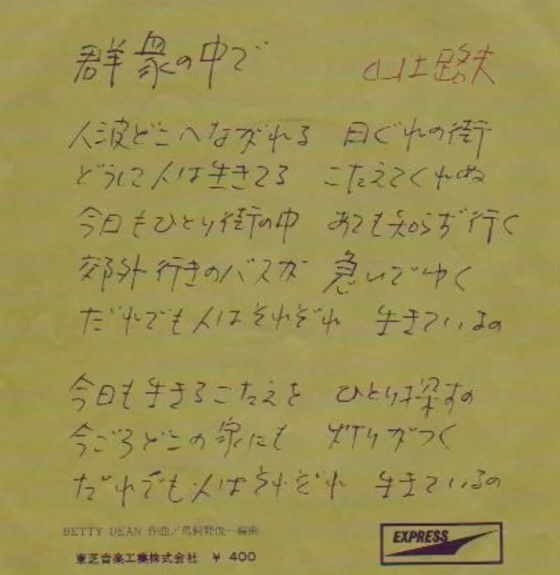 群衆の中で 山上路夫
人波どこへながれる 日ぐれの街
どうして人は生きてる こたえてくれぬ
今日もひとり街の中 あても知らず行く
郊外行きのバスが 急いでゆく
だれでも人はそれぞれ 生きているの
今日も生きるこたえを ひとり探すの
今ごろどこの家にも 灯りがつく
だれでも人はそれぞれ 生きているの
BETTY DEAN 作曲/鳥飼野俊一編曲
東芝音楽工業株式会社 ¥ 400
EXPRESS